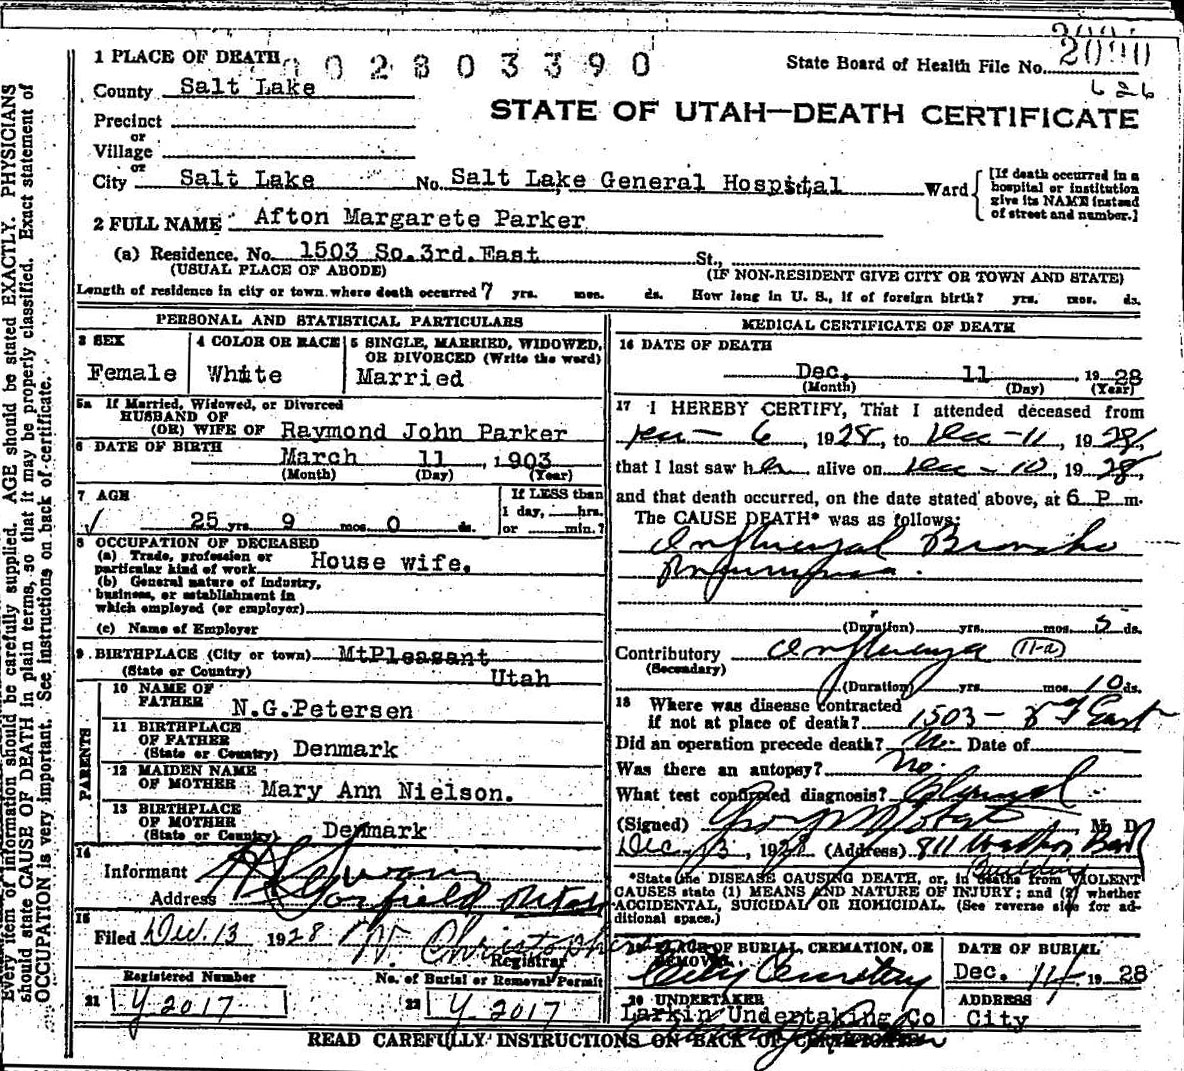 1 PLACE OF DEATH
002803390
State Board of Health File No. 2090
626
County Salt Lake
STATE OF UTAH—DEATH CERTIFICATE
Precinct
or
Village
or
City Salt Lake No. Salt Lake General Hospital Ward
[If death occurred in a
hospital or institution
give its NAME instead
of street and number.]
2 FULL NAME Afton Margarete Parker
(a) Residence. No. 1503 So. 3rd. East St.,
(USUAL PLACE OF ABODE) (IF NON-RESIDENT GIVE CITY OR TOWN AND STATE)
Length of residence in city or town where death occurred 7 yrs. mos. ds. How long in U. S., if of foreign birth? yrs. mos. ds.
PERSONAL AND STATISTICAL PARTICULARS
3 SEX
Female
4 COLOR OR RACE
White
5 SINGLE, MARRIED, WIDOWED,
OR DIVORCED (Write the word)
Married
5a If Married, Widowed, or Divorced
HUSBAND OF
(OR) WIFE OF Raymond John Parker
6 DATE OF BIRTH
March 11, 1903
(Month) (Day) (Year)
7 AGE
25 yrs. 9 mos. 0 ds.
If LESS than
1 day, hrs.
or min.?
8 OCCUPATION OF DECEASED
(a) Trade, profession or
particular kind of work House wife.
(b) General nature of industry,
business, or establishment in
which employed (or employer)
(c) Name of Employer
9 BIRTHPLACE (City or town) MtPleasant
(State or Country) Utah
PARENTS
10 NAME OF
FATHER N.G.Petersen
11 BIRTHPLACE
OF FATHER
(State or Country) Denmark
12 MAIDEN NAME
OF MOTHER Mary Ann Nielson.
13 BIRTHPLACE
OF MOTHER
(State or Country) Denmark
14
Informant
Address Garfield Utah
15
Filed Dec. 13 1928 W. Christopherson
Registrar
Registered Number
21 Y 2017
No. of Burial or Removal Permit
22 Y 2017
MEDICAL CERTIFICATE OF DEATH
16 DATE OF DEATH
Dec. 11, 1928
(Month) (Day) (Year)
17 I HEREBY CERTIFY, That I attended deceased from
6, 1928, to Dec-11, 1928,
that I last saw her alive on Dec-10, 1928,
and that death occurred, on the date stated above, at 6 P m.
The CAUSE DEATH* was as follows:
Influenzal Broncho
Pneumonia.
(Duration) yrs. mos. 5 ds.
Contributory Influenza 11-a
(Secondary)
(Duration) yrs. mos. 10 ds.
18 Where was disease contracted
if not at place of death? 1503- East
Did an operation precede death? No Date of
Was there an autopsy? No.
What test confirmed diagnosis? Clinical
(Signed) M. D.
Dec. 13, 1928 (Address) 811
*State the DISEASE CAUSING DEATH, or, in deaths from VIOLENT
CAUSES state (1) MEANS AND NATURE OF INJURY; and (2) whether
ACCIDENTAL, SUICIDAL OR HOMICIDAL. (See reverse side for ad-
ditional space.)
19 PLACE OF BURIAL, CREMATION, OR
REMOVAL
City Cemetery
DATE OF BURIAL
Dec. 14 1928
20 UNDERTAKER
Larkin Undertaking Co
ADDRESS
City
READ CAREFULLY INSTRUCTIONS ON BACK OF CERTIFICATE
Every item of information should be carefully supplied. AGE should be stated EXACTLY. PHYSICIANS
should state CAUSE OF DEATH in plain terms, so that it may be properly classified. Exact statement of
OCCUPATION is very important. See instructions on back of certificate.